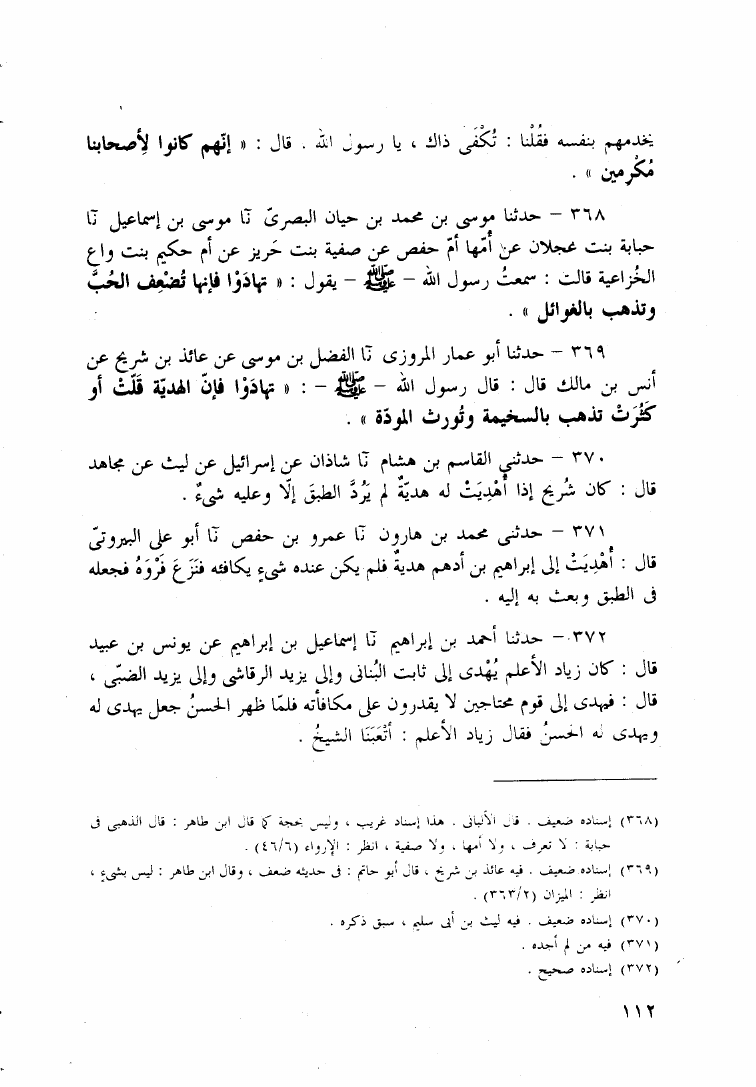 يخدمهم بنفسه فقُلْنا : تُكْفَى ذاك ، يا رسول الله . قال : « إنّهم كانوا لأِصحابنا
مُكْرمين » .
٣٦٨ – حدثنا موسى بن محمد بن حيان البصرىّ نَا موسى بن إسماعيل نَا
حبابة بنت عجلان عن أمّها أمّ حفص عن صفية بنت جَرير عن أم حكيم بنت واع
الخُزاعية قالت : سمعتُ رسول الله – ﷺ – يقول : « تهادَوْا فإنها تُضْعِف الحُبَّ
وتذهب بالغوائل » .
٣٦٩ – حدثنا أبو عمار المروزى نَا الفضل بن موسى عن عائذ بن شريح عن
أنس بن مالك قال : قال رسول الله – ﷺ – : « تهادَوْا فإنّ الهديّة قَلّتْ أو
كَثُرَتْ تذهب بالسخيمة وتُورث المودّة » .
٣٧٠ – حدثني القاسم بن هشام نَا شاذان عن إسرائيل عن ليث عن مجاهد
قال : كان شُريح إذا أُهْدِيَتْ له هديّةٌ لم يَرُدَّ الطبقَ إلّا وعليه شىءٌ .
٣٧١ – حدثنى محمد بن هارون نَا عمرو بن حفص نَا أبو على البيروتىّ
قال : أُهْدِيَتْ إلى إبراهيم بن أدهم هديةٌ فلم يكن عنده شىءٍ يكافئه فنَزَعَ فَرْوَهُ فجعله
فى الطبق وبعث به إليه .
٣٧٢ – حدثنا أحمد بن إبراهيم نَا إسماعيل بن إبراهيم عن يونس بن عبيد
قال : كان زياد الأعلم يُهْدى إلى ثابت البُنانى وإلى يزيد الرقاشى وإلى يزيد الضبّى ،
قال : فيهدى إلى قوم محتاجين لا يقدرون على مكافأته فلمّا ظهر الحسنُ جعل يهدى له
ويهدى له الحسنُ فقال زياد الأعلم : أتْعَبَنَا الشيخُ .
(٣٦٨) إسناده ضعيف . قال الألبانى . هذا إسناد غريب ، وليس بحجة كما قال ابن طاهر : قال الذهبى فى
حبابة : لا تعرف ، ولا أمها ، ولا صفية ، انظر : الإرواء (٤٦/٦) .
(٣٦٩) إسناده ضعيف . فيه عائذ بن شريح ، قال أبو حاتم : فى حديثه ضعف ، وقال ابن طاهر : ليس بشىءٍ ،
انظر : الميزان (٣٦٣/٢) .
(٣٧٠) إسناده ضعيف . فيه ليث بن أبى سليم ، سبق ذكره .
(٣٧١) فيه من لم أجده .
(٣٧٢) إسناده صحيح .
١١٢